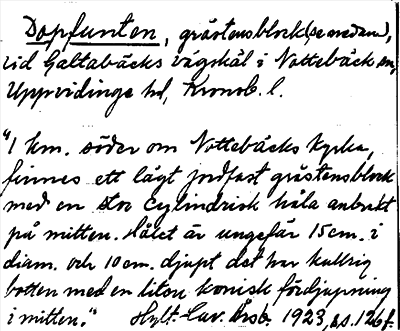 Dopfunten, gråstensblock (se nedan),
vid Galtabäcks vägskäl i Nottebäck sn,
Uppvidinge hd, Kronob. l.
"1 km. söder om Nottebäcks kyrka,
finnes ett lågt jordfast gråstensblock
med en stor cylindrisk håla anbrakt
på mitten. Hålet är ungefär 15 cm. i
diam. och 10 cm. djupt det har kullrig
botten med en liten konisk fördjupning
i mitten." Hylt.-Cav. Årsb. 1923, s. 126f.